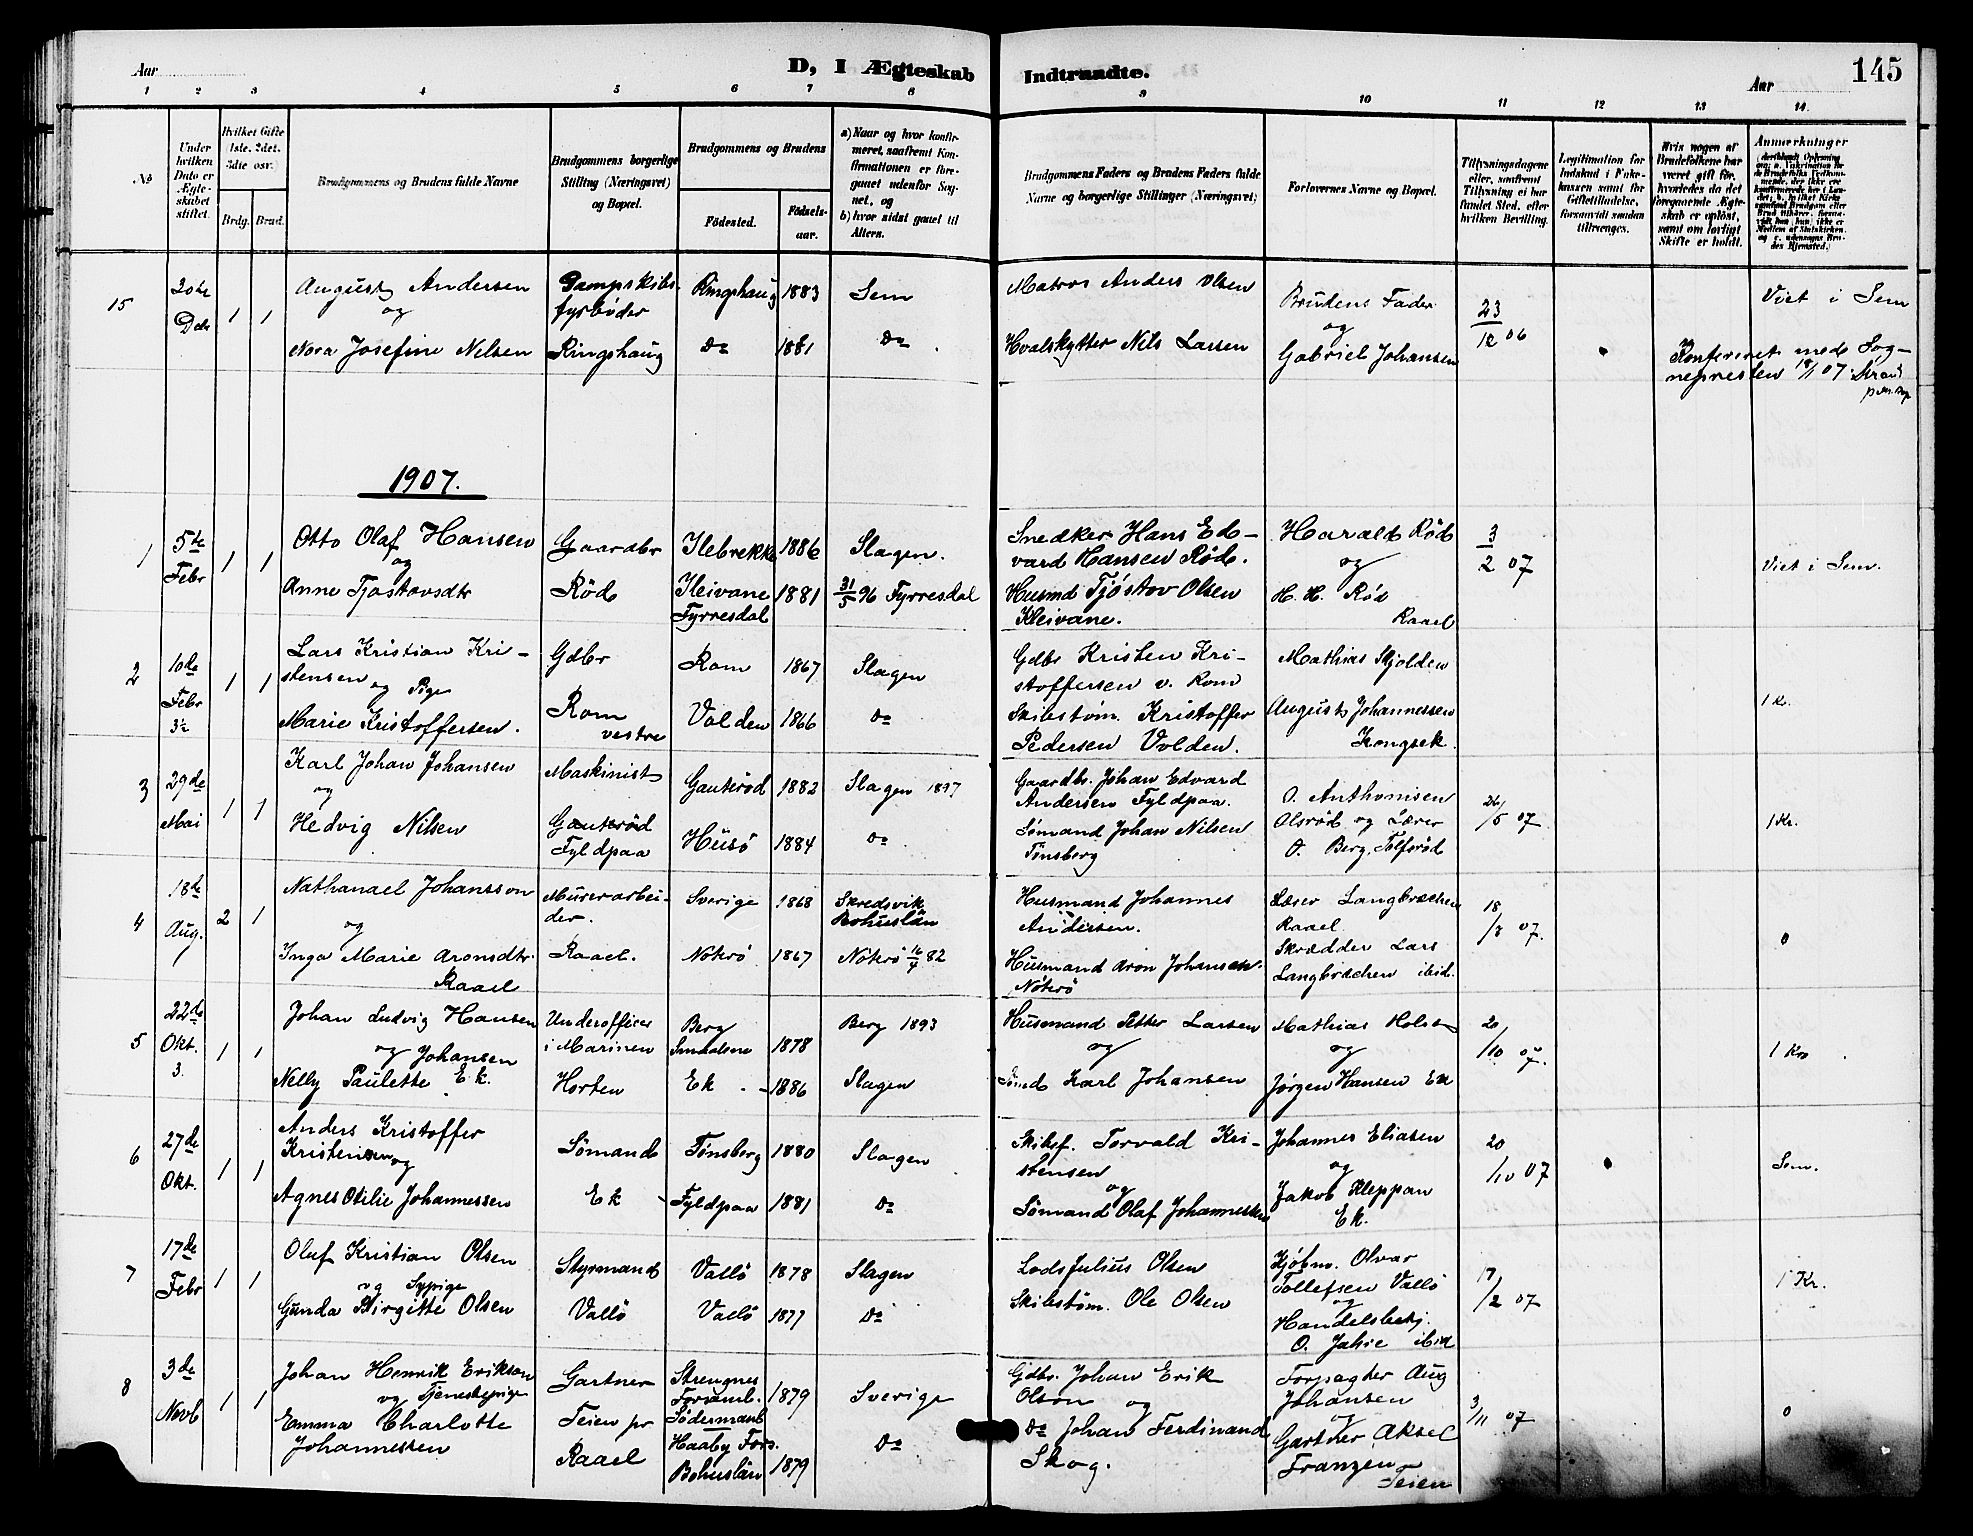 Aar
D, I Ægteskab Indtraadte.
Aar
145
1 2 3 4 5 6 7 8 9 10 11 12 13 14.
No
Under hvilken Dato er Ægteskabet stiftet.
Hvilket Gifte 1ste. 2det. 3die osv.
Brdg. Brud.
Brudgommens og Brudens fulde Navne
Brudgommens borgerlige Stilling (Næringsvei) og Bopæl.
Brudgommens og Brudens
Fødested.
Fødselsaar.
a) Naar og hvor konfirmeret, saafremt Konfirmationen er foregaaet udenfor Sognet, og
b) hvor sidst gaaet til Alters.
Brudgommens Faders og Brudens Faders fulde Navne og borgerlige Stillinger (Næringsvei)
Forlovernes Navne og Bopæl.
Tillysningsdagene eller, saafremt Tillysning ei har fundet Sted, efter hvilken Bevilling.
Legitimation for Indskud i Enkekassen samt for Giftetilladelse, forsaavidt saadan tiltrænges.
Hvis nogen af Brudefolkene har været gift før, hvorledes da det foregaaende Ægteskab er opløst, samt om lovligt Skifte er holdt.
Anmerkninger
15
20de Dcbr
1 1
August Andersen
og
Nora Josefine Nilsen
Dampskibsfyrbøder
Ringshaug
Ringshaug 1883
Do 1881
Sem
Do
Matros Anders Olsen
Hvalskytter Nils Larsen
Brudens Fader
og
Gabriel Johansen
23/12 06
Viet i Sem
Konfereret med Sognepresten 18/1 07.
1907.
1
5te Febr
1 1
Otto Olaf Hansen
og
Anne Tjøstovsdtr
Gaardbr
Röd
Ilebrekke 1886
Kleivane Fyrresdal 1881
Slagen.
31/5 96 Fyrresdal
Snedker Hans Edvard Hansen Röd.
Husmd Tjöstov Olsen Kleivane.
Harald Röd
og
H. H. Röd
Raael
3/2 07
Viet i Sem.
2
10de Febr
1 1
Lars Kristian Kristensen
og Pige
Marie Kristoffersen.
Gdbr
Rom vestre
Rom 1867
Volden 1866
Slagen
Do
Gdbr Kristen Kristoffersen v. Rom
Skibstøm. Kristoffer Pedersen Volden.
Mathias Skjolden
August Johannessen Kongsek.
1 Kr.
3
29de Mai
1 1
Karl Johan Johansen
og
Hedvig Nilsen
Maskinist
Gauteröd
Fyldpaa
Gauteröd 1882
Husö 1884
Slagen 1897
Do
Gaardbr. Johan Edvard Andersen Fyldpaa.
Sømand Johan Nilsen
Tönsberg
O. Anthonisen
Olsröd og Lærer
O. Berg, Tolfsröd
26/5 07.
1 Kr.
4
18de Aug.
2 1
Nathanael Johansson
og
Inga Marie Aronsdtr.
Raael
Murerarbeider.
Raael.
Sverige 1868
Nötrö 1867
Skredsvik Bohuslän
Nötrö 16/4 82
Husmand Johannes Andersen.
Husmand Aron Johansen.
Nötrö
Lærer Langbræchen
Raael
Skrædder Lars
Langbræchen ibid.
18/8 07.
0
5
22de Okt. 3.
1 1
Johan Ludvig Hansen
og Johansen
Nelly Paulette Ek.
Underofficer i Marinen
Horten
Berg Smaalene 1878
Ek 1886
Berg 1893
Slagen
Husmand Petter Larsen
og
Sömd Karl Johansen
Mathias Holst
og
Jörgen Hansen Ek
20/10 07.
1 Kr
6
27de Okt.
1 1
Anders Kristoffer Kristensen
og
Agnes Otilie Johannessen
Sömand
Ek
Tönsberg 1880
Fyldpaa 1881
Slagen
Do
Skibsf. Torvald Kristensen
og
Sömand Olaf Johannessen
Johannes Eliasen
og
Jakob Kleppan
Ek.
20/10 07
Sem.
7
17de Febr
1 1
Oluf Kristian Olsen
og Sypige
Gunda Birgitte Olsen
Styrmand
Vallö
Vallö 1878
Vallö 1877
Slagen
Do
Lods Julius Olsen
Skibstöm. Ole Olsen
Kjöbm. Olvar
Tollefsen Vallö
og
Handelsbetj.
O. Jahre ibid
17/2 07
1 Kr.
8
3de Novb
1 1
Johan Henrik Erikson
og Tjenestepige
Emma Charlotte Johannessen
Gartner
Teien pr Raael
Strengnes Forsaml. Södermanl 1879
Haaby Fors. Bohuslän 1879
Sverige
Do
Gdbr. Johan Erik Olson
og
Do Johan Ferdinand Skog.
Forpagter Aug
Johansen
og
Gartner Aksel
Franzen
Teien
3/11 07
0